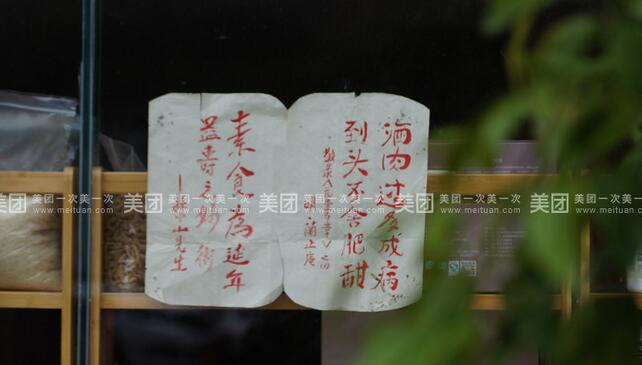 酒肉过多成病
到头不害肥甜
素食為延年
益寿之妙術
中山先生
美团 美团一次美一次
www.meituan.com
美团 美团一次美一次
www.meituan.com
美团 美团一次美一次
www.meituan.com
美团 美团一次美一次
www.meituan.com
美团 美团一次美一次
www.meituan.com